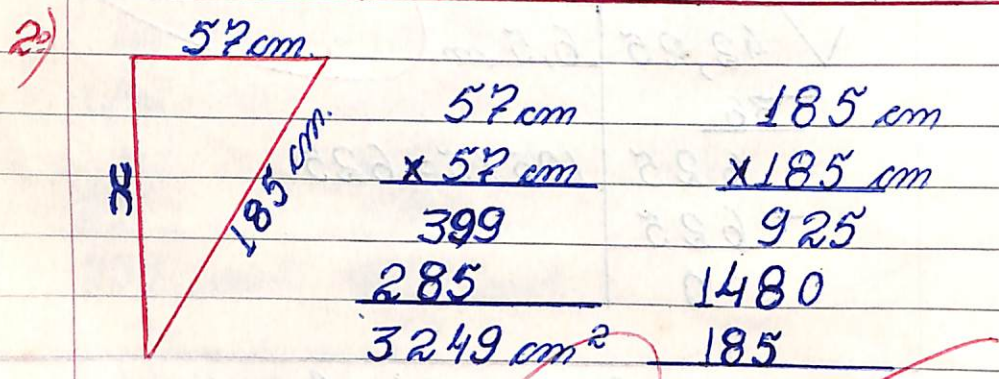 2º)
57 cm.
x
185 cm.
57 cm
× 57 cm
399
285
3249 cm²
185 cm
×185 cm
925
1480
185